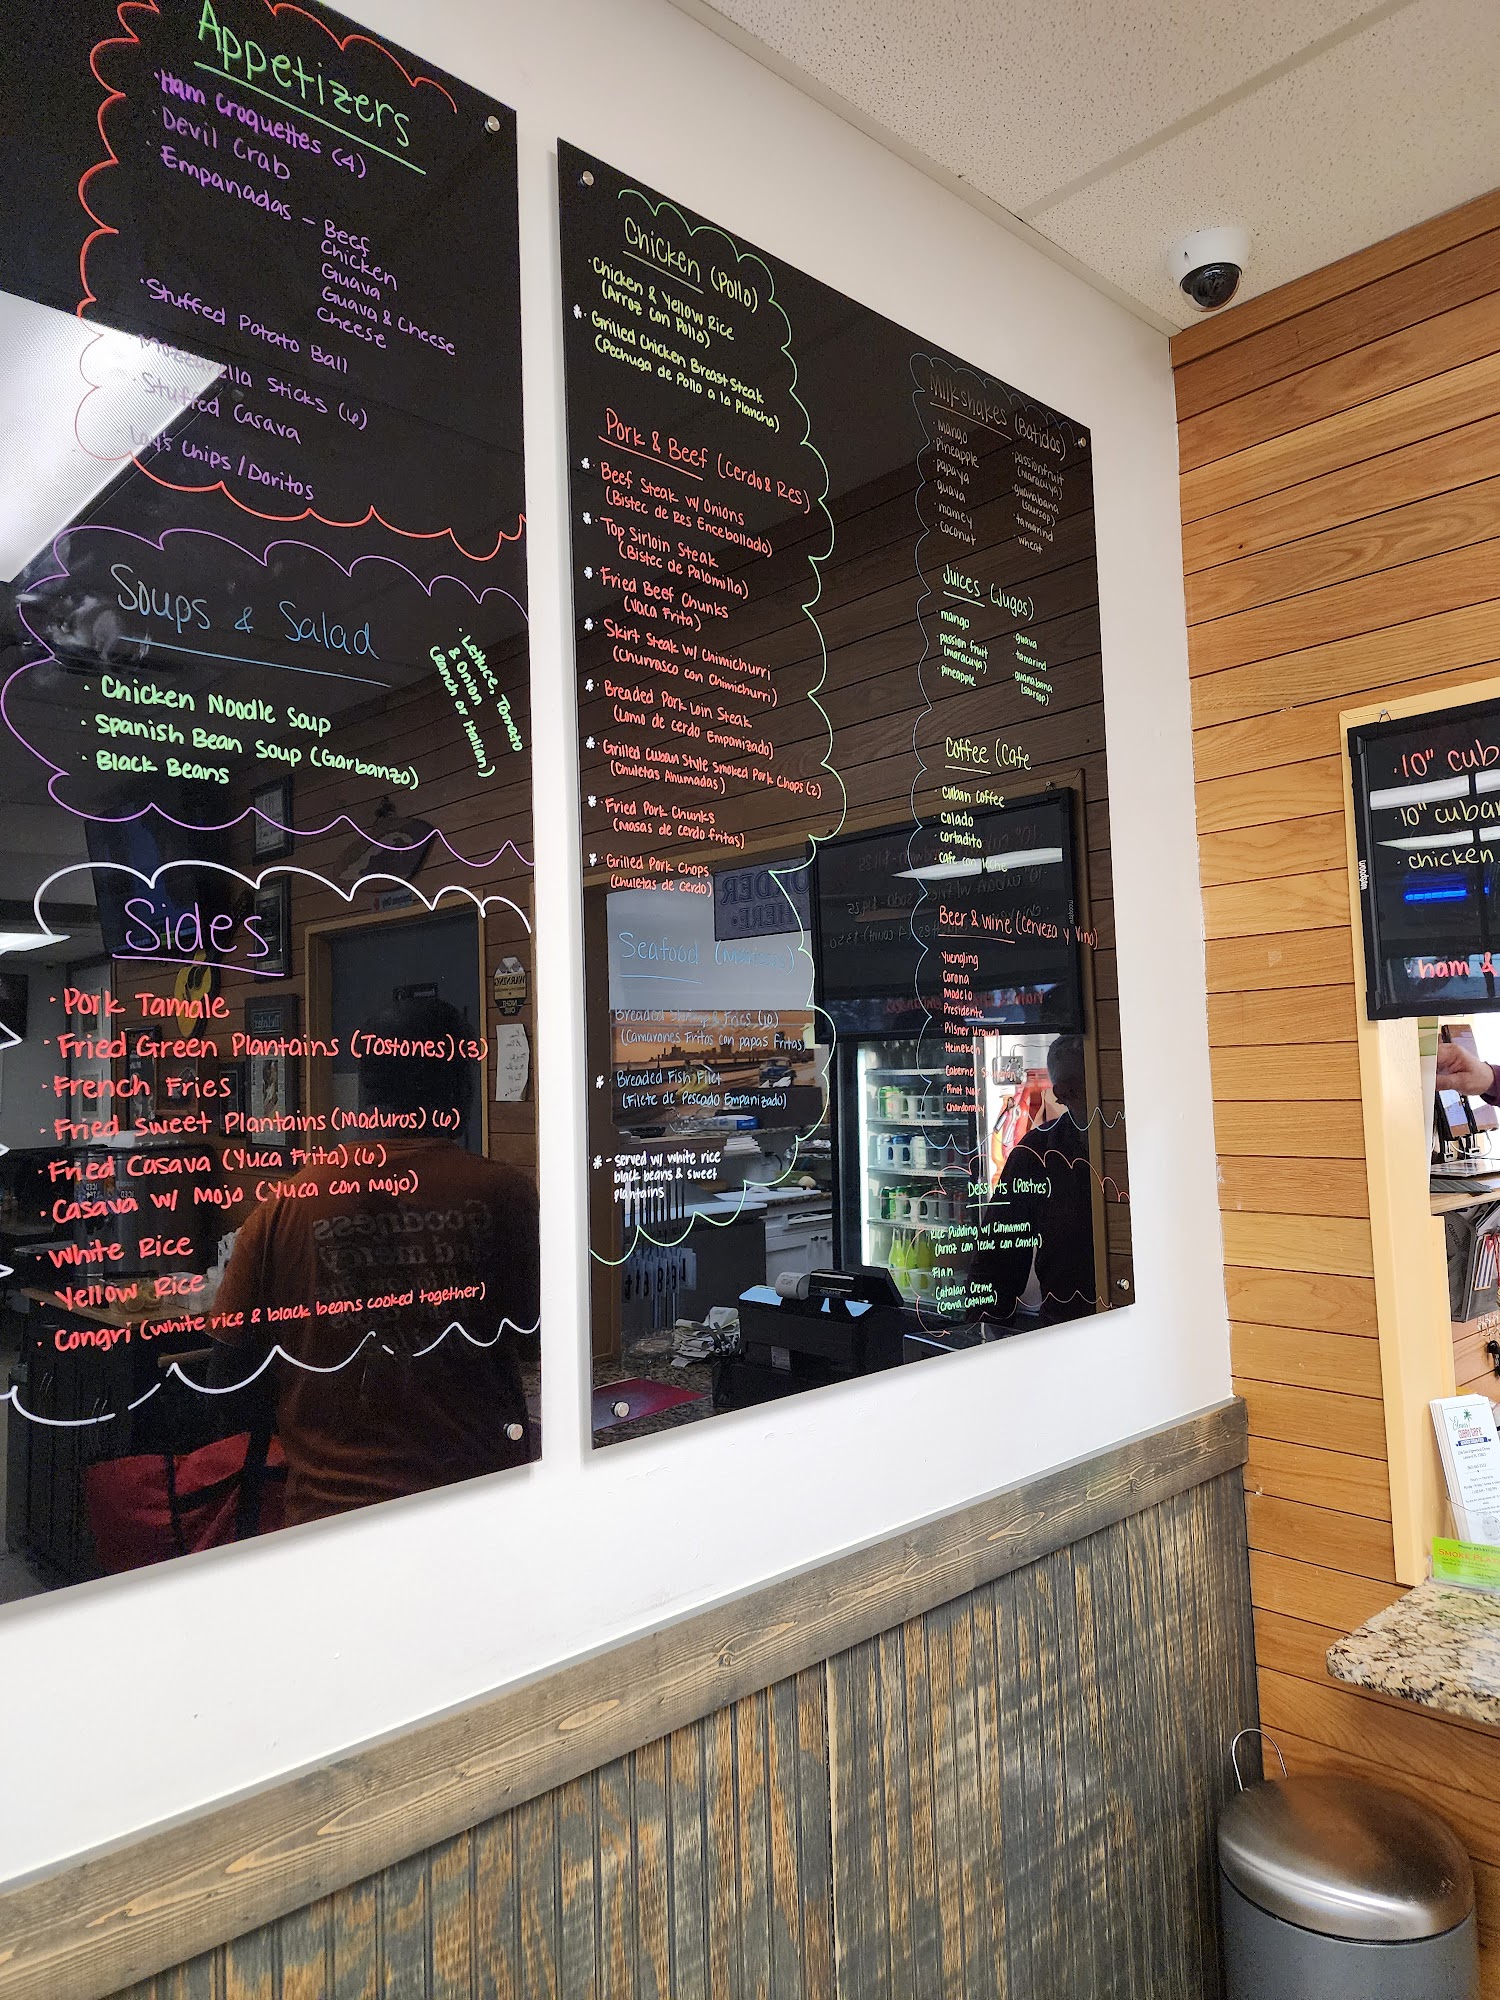 Appetizers
· Ham Croquettes (4)
· Devil Crab
· Empanadas - Beef
Chicken
Guava
Guava & Cheese
Cheese
· Stuffed Potato Ball
· Mozzarella Sticks (6)
· Stuffed Casava
Lay's Chips / Doritos
Soups & Salad
· Chicken Noodle Soup
· Spanish Bean Soup (Garbanzo)
· Black Beans
· Lettuce, Tomato
& Onion
(Ranch or Italian)
Sides
· Pork Tamale
· Fried Green Plantains (Tostones) (3)
· French Fries
· Fried Sweet Plantains (Maduros) (6)
· Fried Casava (Yuca Frita) (6)
· Casava w/ Mojo (Yuca con Mojo)
· White Rice
· Yellow Rice
· Congri (white rice & black beans cooked together)
Chicken (Pollo)
· Chicken & Yellow Rice
(Arroz con Pollo)
* · Grilled Chicken Breast Steak
(Pechuga de Pollo a la Plancha)
Pork & Beef (Cerdo & Res)
* · Beef Steak w/ Onions
(Bistec de Res Encebollado)
* · Top Sirloin Steak
(Bistec de Palomilla)
* · Fried Beef Chunks
(Vaca Frita)
* · Skirt Steak w/ Chimichurri
(Churrasco con Chimichurri)
* · Breaded Pork Loin Steak
(Lomo de cerdo Empanizado)
* · Grilled Cuban Style Smoked Pork Chops (2)
(Chuletas Ahumadas)
* · Fried Pork Chunks
(Masas de cerdo fritas)
* · Grilled Pork Chops
(Chuletas de Cerdo)
Seafood (Mariscos)
Breaded Shrimp & Fries (10)
(Camarones Fritos con papas Fritas)
* · Breaded Fish Filet
(Filete de Pescado Empanizado)
* - served w/ white rice
black beans & sweet
plantains
Milkshakes (Batidos)
· mango
· pineapple
· papaya
· guava
· mamey
· coconut
· passionfruit
(maracuya)
· guanabana
(soursop)
· tamarind
· wheat
Juices (Jugos)
mango
passion fruit
(maracuya)
pineapple
· guava
· tamarind
guanabana
(soursop)
Coffee (Cafe
· cuban coffee
· colado
· cortadito
· cafe con leche
Beer & wine (Cerveza y Vino)
Yuengling
Corona
Modelo
Presidente
Pilsner Urquell
Heineken
Cabernet
Pinot
Chardonnay
Desserts (Postres)
Rice Pudding w/ Cinnamon
(Arroz con leche con canela)
Flan
Catalan Creme
(Crema Catalana)
· 10" cub
· 10" cuba
· chicken
ham &
woodsam
CUBAN CAFE
SMOKE